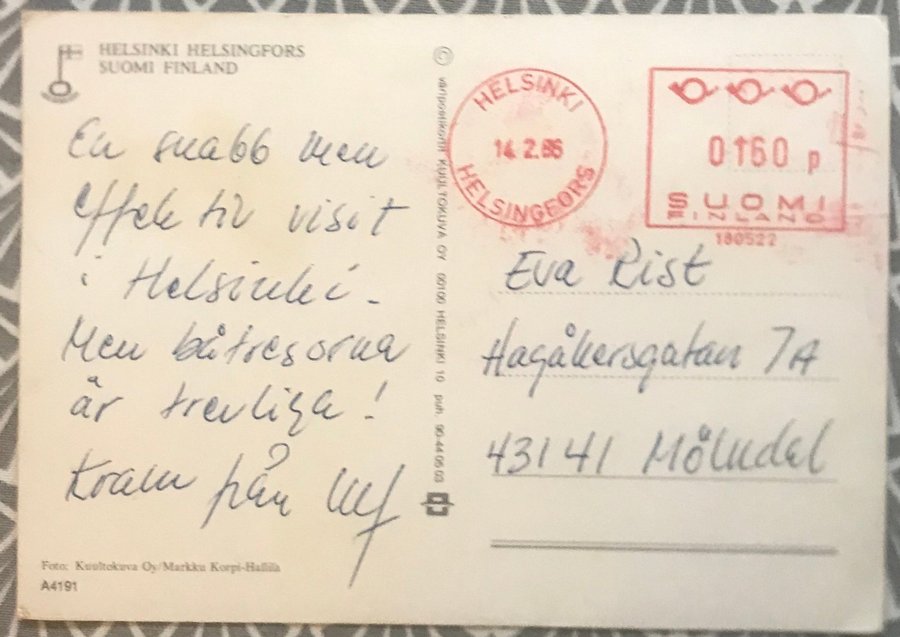 HELSINKI HELSINGFORS
SUOMI FINLAND
En snabb men
effektiv visit
i Helsinki.
Men båtresorna
är trevliga!
Kram från Ulf
Foto: Kuultokuva Oy/Markku Korpi-Hallila
A4191
© väripostikortit KUULTOKUVA OY 00100 HELSINKI 10 puh.
HELSINKI
14.2.86
HELSINGFORS
0160 p
SUOMI
FINLAND
180522
Eva Rist
Hagåkersgatan 7A
43141 Mölndal